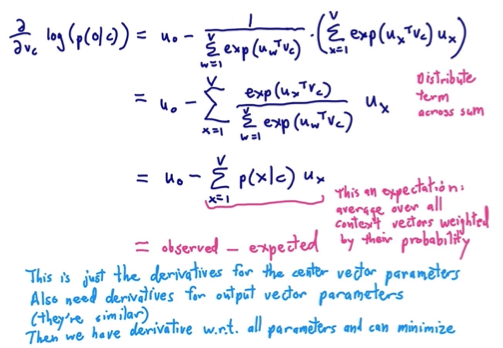 ∂/∂v_c log(p(o|c)) = u_o - 1/(Σ_{w=1}^{V} exp(u_w^T v_c)) · (Σ_{x=1}^{V} exp(u_x^T v_c) u_x)
= u_o - Σ_{x=1}^{V} exp(u_x^T v_c)/(Σ_{w=1}^{V} exp(u_w^T v_c)) u_x
Distribute
term
across sum
= u_o - Σ_{x=1}^{V} p(x|c) u_x
This an expectation:
average over all
context vectors weighted
by their probability
= observed - expected
This is just the derivatives for the center vector parameters
Also need derivatives for output vector parameters
(they're similar)
Then we have derivative w.r.t. all parameters and can minimize